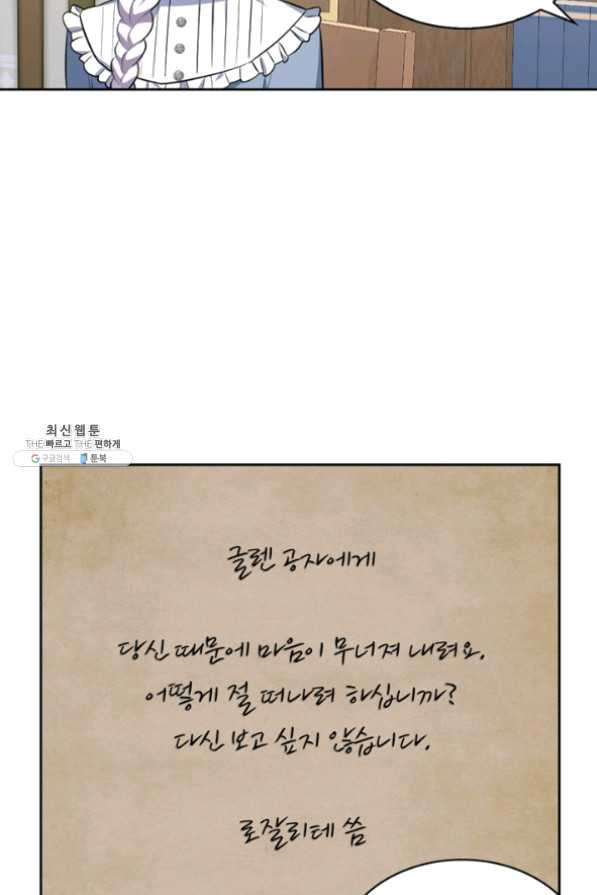 최신웹툰
THE 빠르고 THE 편하게
구글검색 툰북
글렌 공자에게
당신 때문에 마음이 무너져 내려요.
어떻게 절 떠나려 하십니까?
다신 보고 싶지 않습니다.
로잘리테 씀